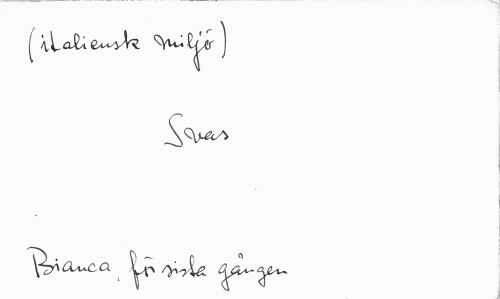 (italiensk miljö)
Svas
Bianca, för sista gången